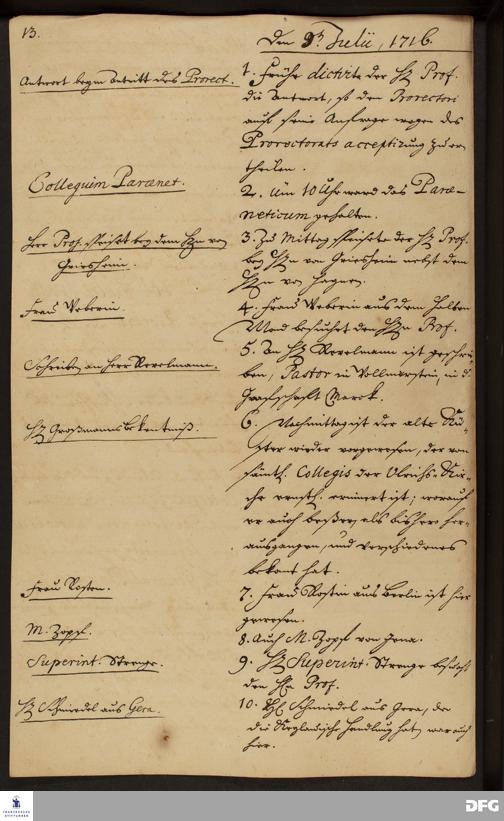 13.
Den 9t. Julii, 1716.
Antwort beym Antritt des Prorect.
1. Frühe dictirte der H. Prof.
die Antwort, so den Prorectori
auf seine Anfrage wegen des
Prorectorats acceptirung zu er-
theilen.
Collegium Paraenet.
2. Um 10 Uhr ward das Parae-
neticum gehalten.
Herr Prof. speiset bey dem Hn von
Griesheim.
3. Zu Mittag speisete der H. Prof.
bey Hn von Griesheim nebst dem
Hn von Hagen.
Frau Weberin.
4. Frau Weberin aus dem halben
Mond besuchet den Hn Prof.
Schreiben an Herr Revelmann.
5. An H. Revelmann ist geschrie-
ben, Pastor in Vollmarstein, in d.
Grafschaft Marck.
H. Großmanns Bekentniß.
6. Nachmittag ist der alte Kü-
ster wieder vorgewesen, der von
sämtl. Collegis der Ulrichs-Kir-
che ernstl. erinnert ist; worauf
er auch besser, als bisher her-
ausgangen, und verschiedenes
bekant hat.
Frau Rosten.
7. Frau Rostin aus Berlin ist hier
gewesen.
M. Zopf.
8. Auch M. Zopf von Jena.
Superint. Strenge.
9. H. Superint. Strenge besucht
den Hn Prof.
H. Schmiedel aus Gera.
10. H. Schmiedel aus Gera, der
die Handlung hat, war auch
hier.
FRANCKESCHE
STIFTUNGEN
DFG